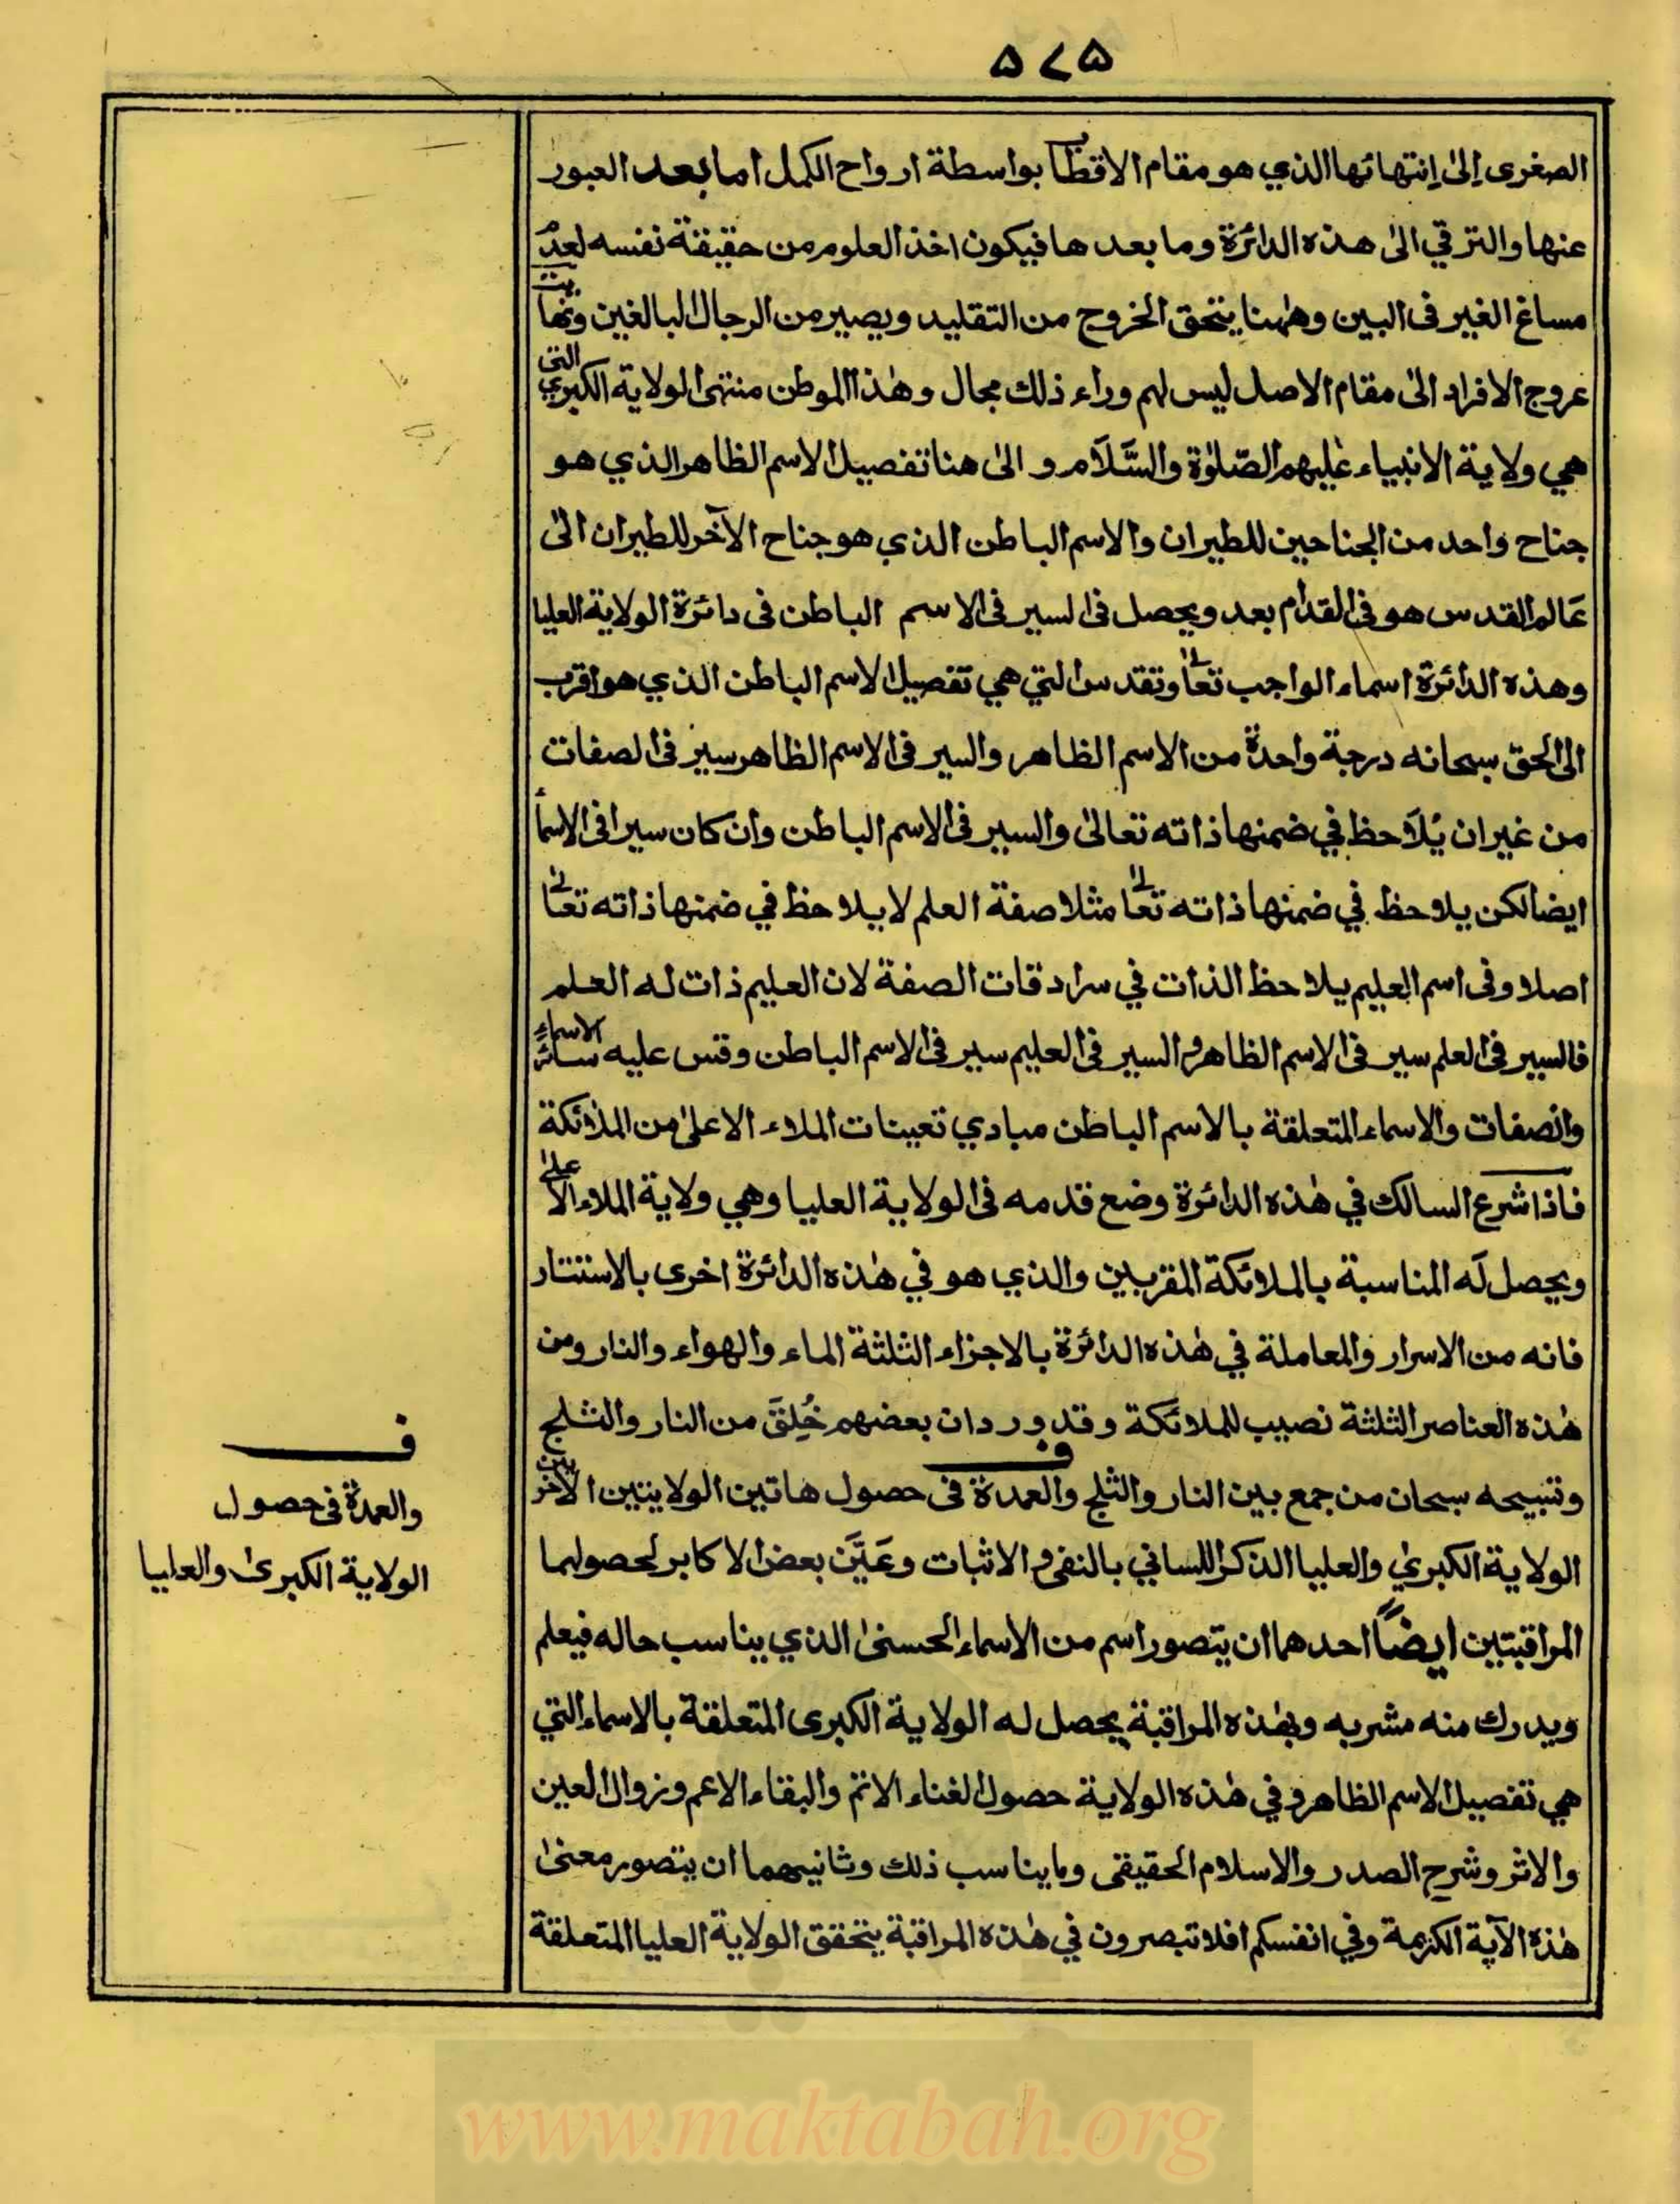 ٥٧٥
الصغرى إلىٰ إنتهائها الذي هو مقام الاقطاب بواسطة ارواح الكمل اما بعد العبور
عنها والترقي الىٰ هذه الدائرة وما بعدها فيكون اخذ العلوم من حقيقة نفسه لعدم
مساغ الغير فى البين وههٰنا يتحقق الخروج من التقليد ويصير من الرجال البالغين ونهاية
عروج الافراد الىٰ مقام الاصل ليس لهم وراء ذلك مجال وهٰذا الموطن منتهى الولاية الكبرىٰ التى
هي ولاية الانبياء عليهم الصّلوٰة والسَّلَام و الىٰ هنا تفصيل الاسم الظاهر الذي هو
جناح واحد من الجناحين للطيران والاسم الباطن الذي هو جناح الآخر للطيران الىٰ
عَالم القدس هو فى القدام بعد ويحصل فى السير فى الاسم الباطن فى دائرة الولاية العليا
وهذه الدائرة اسماء الواجب تعالىٰ وتقدس التي هي تفصيل الاسم الباطن الذي هو اقرب
الى الحق سبحانه درجة واحدة من الاسم الظاهر والسير فى الاسم الظاهر سير فى الصفات
من غير ان يُلَاحظ في ضمنها ذاته تعالىٰ والسير فى الاسم الباطن وان كان سيرا فى الاسماء
ايضا لكن يلاحظ في ضمنها ذاته تعالىٰ مثلا صفة العلم لا يلاحظ في ضمنها ذاته تعالىٰ
اصلا وفى اسم العليم يلاحظ الذات في سرادقات الصفة لان العليم ذات له العلم
فالسير فى العلم سير فى الاسم الظاهر والسير فى العليم سير فى الاسم الباطن وقس عليه سائر الاسماء
والصفات والاسماء المتعلقة بالاسم الباطن مبادي تعينات الملاء الاعلىٰ من الملائكة
فاذا شرع السالك في هٰذه الدائرة وضع قدمه فى الولاية العليا وهي ولاية الملاء الاعلىٰ
ويحصل لَه المناسبة بالملائكة المقربين والذي هو في هٰذه الدائرة اخرى بالاستتار
فانه من الاسرار والمعاملة في هٰذه الدائرة بالاجزاء الثلثة الماء والهواء والنار ومن
هٰذه العناصر الثلثة نصيب للملائكة وقد ورد ان بعضهم خُلِقَ من النار والثلج
وتسبيحه سبحان من جمع بين النار والثلج ف والعمدة فى حصول هاتين الولايتين الاخريين
الولاية الكبرىٰ والعليا الذكر اللساني بالنفى والاثبات وعَيَّن بعض الاكابر لحصولهما
المراقبتين ايضاً احدهما ان يتصور اسم من الاسماء الحسنىٰ الذي يناسب حاله فيعلم
ويدرك منه مشربه وبهٰذه المراقبة يحصل له الولاية الكبرى المتعلقة بالاسماء التي
هي تفصيل الاسم الظاهر وفي هٰذه الولاية حصول الفناء الاتم والبقاء الاعم وزوال العين
والاثر وشرح الصدر والاسلام الحقيقى وما يناسب ذلك وثانيهما ان يتصور معنىٰ
هٰذه الآية الكريمة وفي انفسكم افلا تبصرون في هٰذه المراقبة يتحقق الولاية العليا المتعلقة
ف
والعمدة فى حصول
الولاية الكبرىٰ والعليا
www.maktabah.org